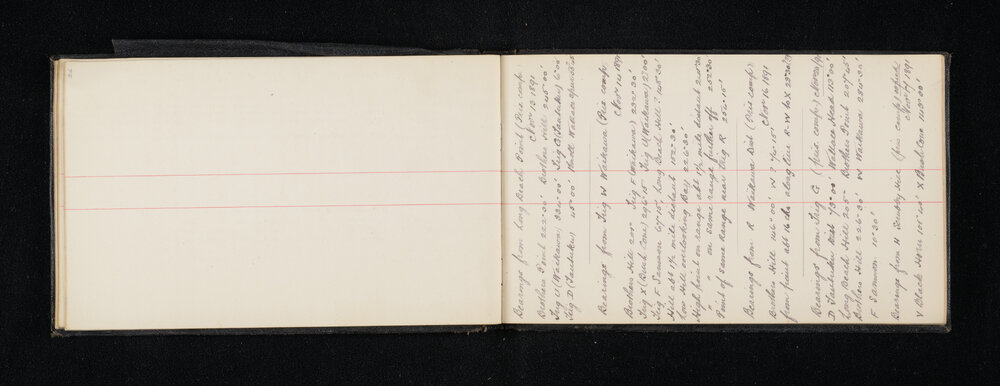 26
Bearings from Long Beach Point (Pris comp)
Nov 13 1891
Brothers Point 222°30' Brothers Hill 245°00'
Trig U (Waikawa) 324°00' Trig C (Tautuku) 6°00'
Trig D (Tautuku) 45°00'
Bearings from Trig W Waikawa (Pris comp)
Nov 14 1891
Brothers Hill 200° Trig F (Waikawa) 232°30'
Trig X (Bush Cone) 296°15' Trig U (Waikawa) 2°00'
Trig F Samson 67°15' Long Beach Hill 145°30'
Hill abt 1½ mile distant 172°30'
Low Hill overlooking Bay 226°30'
High point on range abt 1½ mile distant
" " on same range further off 252°30'
Point of same range near Trig R 256°15'
Bearings from R Waikawa Dist (Pris comp)
Nov 16 1891
Brothers Hill W 76°15'
from point abt 16 chs along line R-W to X
Bearings from Trig G (pris comp) Nov
D Tautuku Dist 73°00' Wallace Head 113°00'
Long Beach Hill 205° Brothers Point 207°45'
Brothers Hill 226°30' W Waikawa 280°30'
F Samson 10°30'
Bearings from H Scrubby Hill (pris comp)
Nov 17 1891
Y Black Horn 101°40' X Bush Cone 113°00'